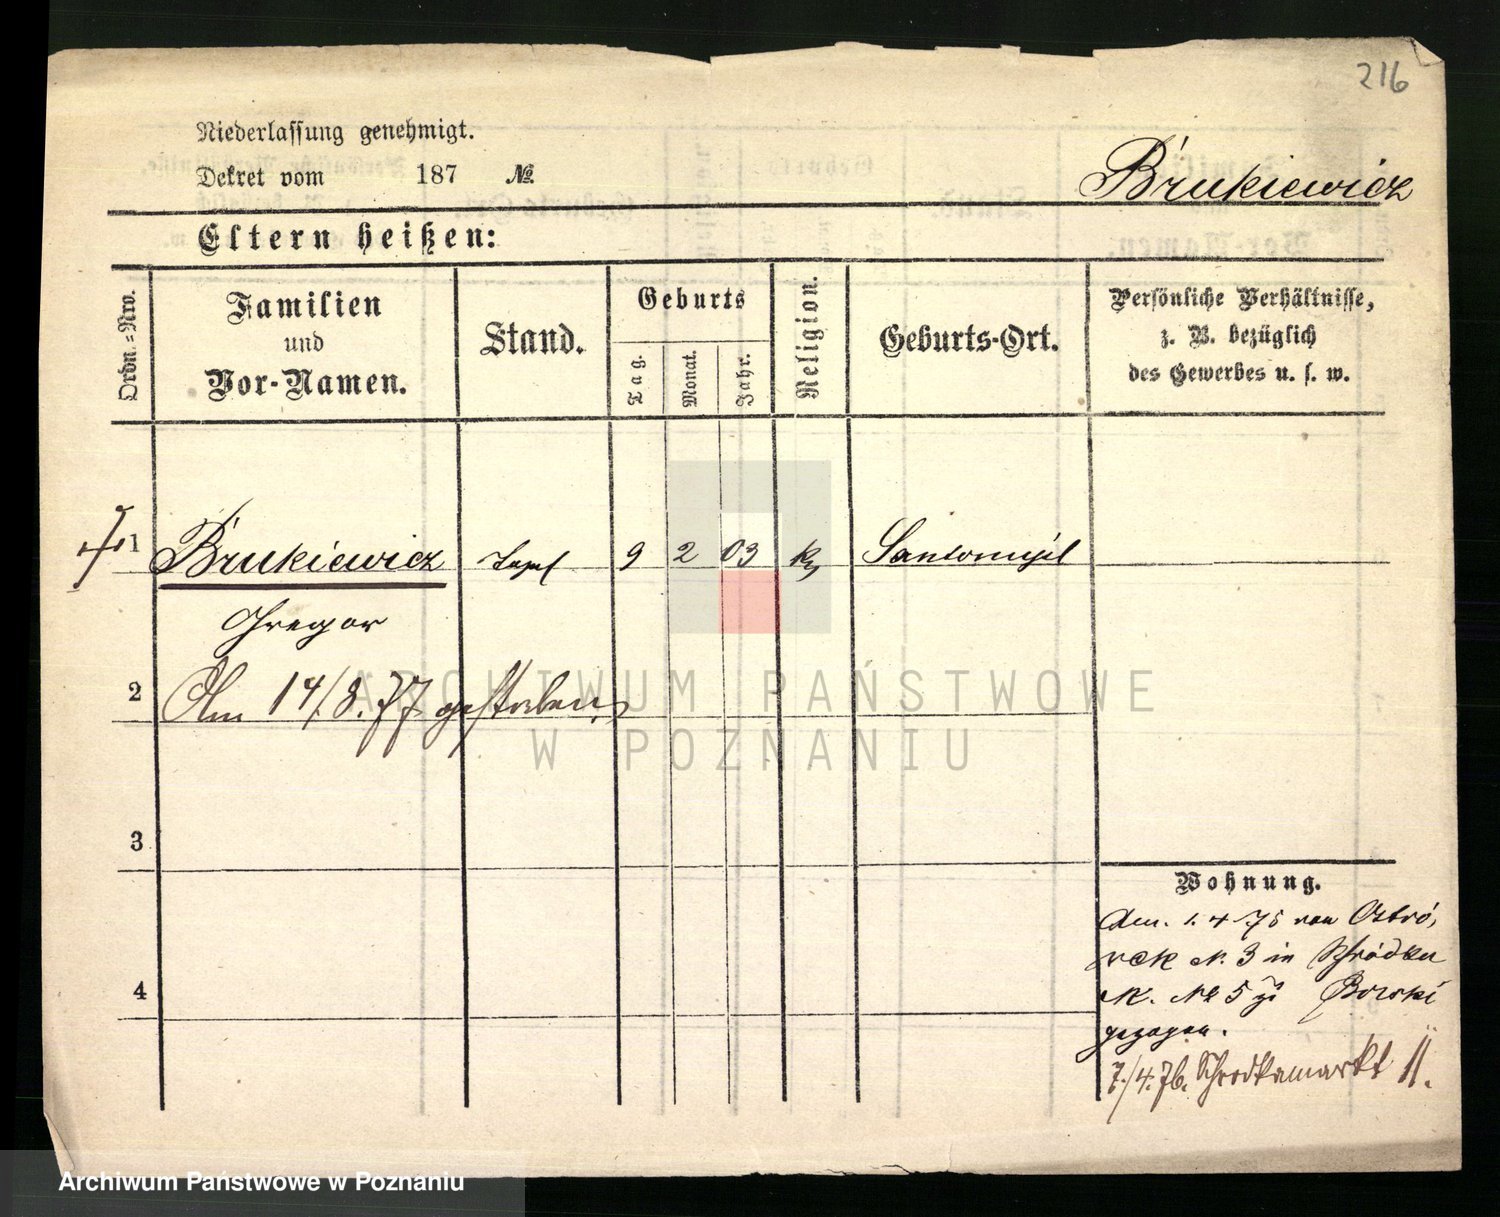 216
Niederlassung genehmigt.
Dekret vom 187 №
Brukiewicz
Eltern heißen:
Ordn.-Nro.
Familien
und
Vor-Namen.
Stand.
Geburts
Tag.
Monat.
Jahr.
Religion.
Geburts-Ort.
Persönliche Verhältnisse,
z. B. bezüglich
des Gewerbes u. s. w.
1 Brukiewicz 9 2 03 Santomysl
Gregor
2 Am 14/8.77 gestorben
3
4
Wohnung.
Am. 1. 4 75 von Ostró,
wek N. 3 in Schrodka
M. № 5 zu Borski
gezogen.
7./4.76. Schrodkamarkt 11.
ARCHIWUM PAŃSTWOWE
W POZNANIU
Archiwum Państwowe w Poznaniu